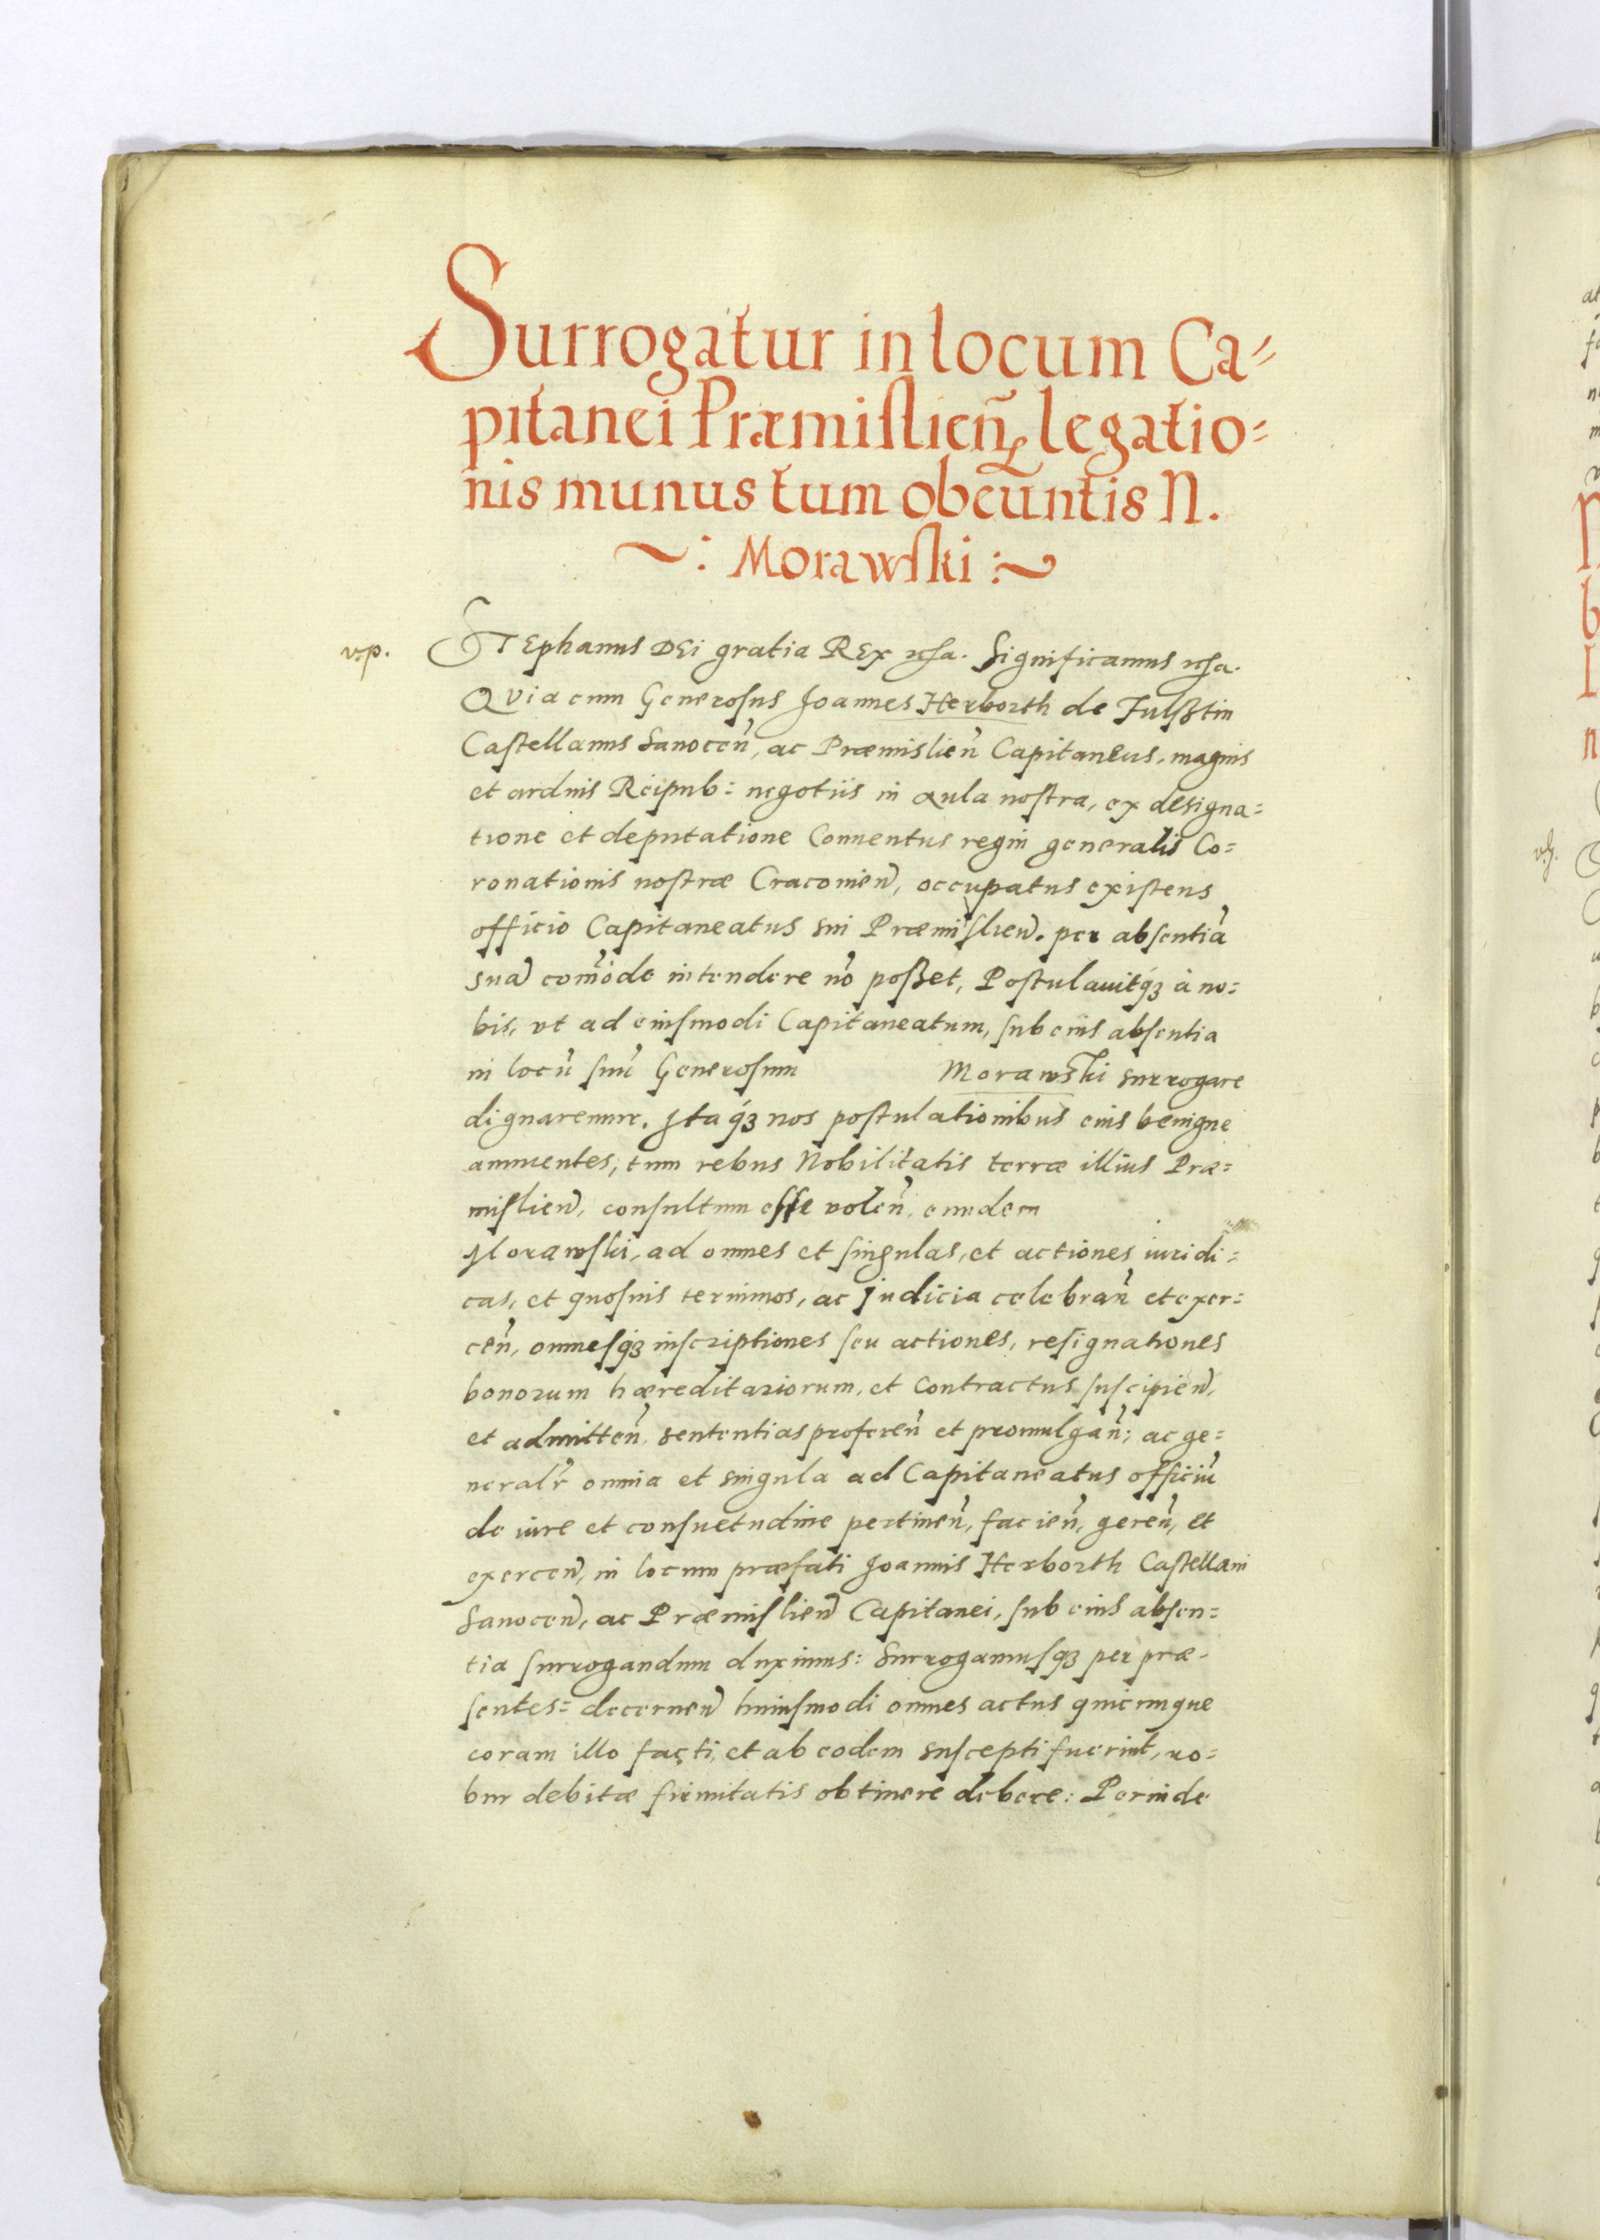 Surrogatur in locum Ca=
pitanei Præmislień legatio=
nis munus tum obeuntis N.
~: Morawski :~
v.p.
STEphanus DEi gratia REx Significamus
QVia cum Generosus Joannes Herborth de Fulßtin
Castellanus Sanoceń, ac Præmislień Capitaneus, magnis
et arduis Reipub: negotiis in Aula nostra, ex designa=
tione et deputatione Conuentus regni generalis Co=
ronationis nostræ Cracouień, occupatus existens
officio Capitaneatus sui Præmislień. per absentiã
suã com̃ode intendere nõ poßet, Postulauitq́ꝫ à no=
bis, vt ad eiusmodi Capitaneatum, sub eius absentia
in locũ suũ Generosum Morawski surrogare
dignaremur. Itaq́ꝫ nos postulationibus eius benigne
annuentes, tum rebus Nobilitatis terræ illius Præ=
mislień, consultum esse voleń, eundem
Morawski, ad omnes et singulas, et actiones iuridi=
cas, et quosuis terminos, ac Judicia celebrań et exer=
ceń, omnesq́ꝫ inscriptiones seu actiones, resignationes
bonorum hæreditariorum, et contractus suscipień,
et admitteń, sententias profereń et promulgań; ac ge=
neralr̃ omnia et singula ad Capitaneatus officiũ
de iure et consuetudine pertineń, facień, gereń, et
exerceń, in locum præfati Joannis Herborth Castellani
Sanoceń, ac Præmislień Capitanei, sub eius absen=
tia surrogandum duximus: Surrogamusq́ꝫ per præ-
sentes= decerneń huiusmodi omnes actus quicunque
coram illo facti, et ab eodem suscepti fuerint, ro=
bur debitæ firmitatis obtinere debere: Perinde